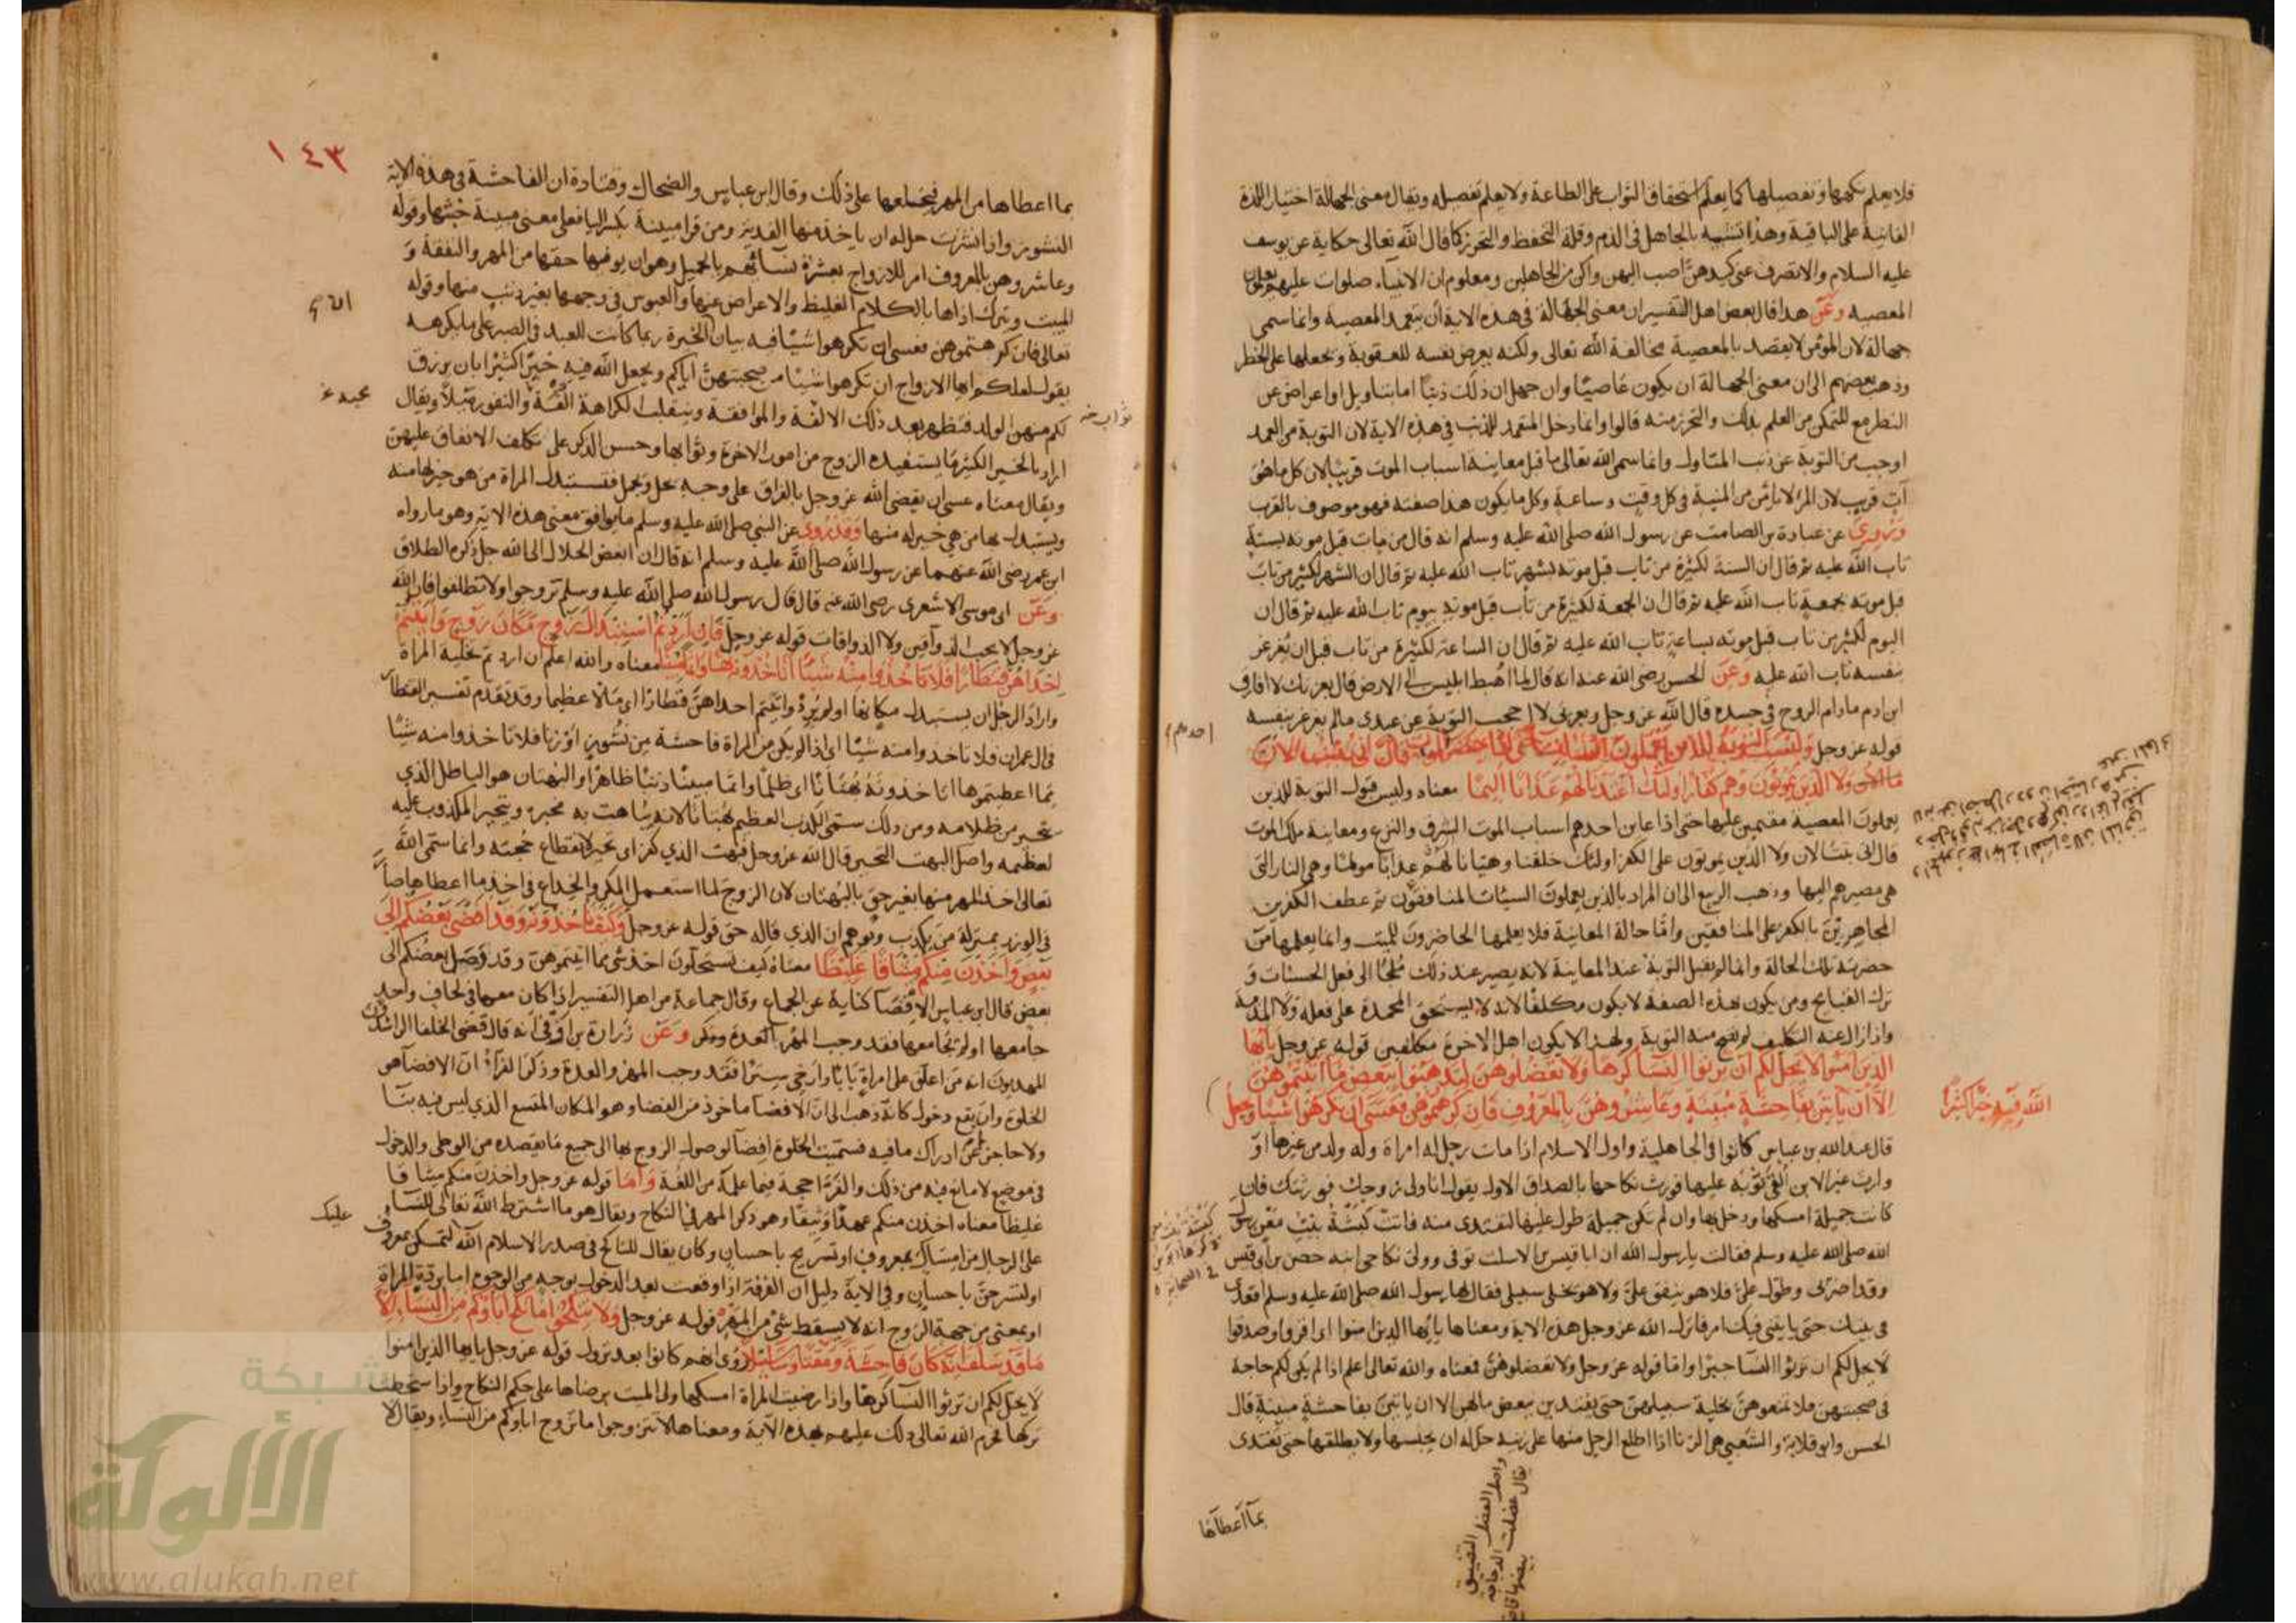 فلا يعلم كنهها وتفصيلها كما يعلم استحقاق الثواب على الطاعة ولا يعلم تفصيله ويقال معنى الجهالة اختيار اللذة
الفانية على الباقية وهذا تشبيه بالجاهل في الذم وقلة التحفظ والتحرز كما قال الله تعالى حكاية عن يوسف
عليه السلام والا تصرف عني كيدهن اصب اليهن واكن من الجاهلين ومعلوم ان الانبياء صلوات عليهم يعلمون
المعصية وعن هذا قال بعض اهل التفسير ان معنى الجهالة في هذه الاية ان يتعمد المعصية وانما سمى
جهالة لان المؤمن لا يقصد بالمعصية مخالفة الله تعالى ولكنه يعرض نفسه للعقوبة ويجعلها على الخطر
وذهب بعضهم الى ان معنى الجهالة ان يكون عاصيا وان جهل ان ذلك ذنبا اما بتاويل او اعراض عن
النظر مع التمكن من العلم بذلك والتحرز منه قالوا وانما دخل المتعمد للذنب في هذه الاية لان التوبة من العمد
اوجب من التوبة عن ذنب المتاول وانما سمى الله تعالى ما قبل معاينة اسباب الموت قريبا لان كل ما هو
آت قريب لان المرء لا يامن من المنية في كل وقت وساعة وكل ما يكون هذا صفته فهو موصوف بالقرب
وروي عن عبادة بن الصامت عن رسول الله صلى الله عليه وسلم انه قال من تاب قبل موته بسنة
تاب الله عليه ثم قال ان السنة لكثيرة من تاب قبل موته بشهر تاب الله عليه ثم قال ان الشهر لكثير من تاب
قبل موته بجمعة تاب الله عليه ثم قال ان الجمعة لكثيرة من تاب قبل موته بيوم تاب الله عليه ثم قال ان
اليوم لكثير من تاب قبل موته بساعة تاب الله عليه ثم قال ان الساعة لكثيرة من تاب قبل ان يغرغر
بنفسه تاب الله عليه وعن الحسن رضي الله عنه انه قال لما اهبط ابليس الى الارض قال بعزتك لا افارق
ابن ادم ما دام الروح في جسده قال الله عز وجل وبعزتي لا احجب التوبة عن عبدي ما لم يغرغر بنفسه
قوله عز وجل وليست التوبة للذين يعملون السيئات حتى اذا حضر احدهم الموت قال اني تبت الان
ولا الذين يموتون وهم كفار اولئك اعتدنا لهم عذابا اليما معناه وليس قبول التوبة للذين
يعملون المعصية مقيمين عليها حتى اذا عاين احدهم اسباب الموت الشرف والنزع ومعاينة ملك الموت
قال اني تبت الان ولا الذين يموتون على الكفر اولئك خلقنا وهيانا لهم عذابا مولما وهي النار التي
هي مصيرهم اليها وذهب الربيع الى ان المراد بالذين يعملون السيئات المنافقون ثم عطف الكفرين
المجاهرين بالكفر على المنافقين واما حالة المعاينة فلا يعلمها الحاضرون للميت وانما يعلمها من
حضرته تلك الحالة وانما لم تقبل التوبة عند المعاينة لانه يصير عند ذلك ملجئا الى فعل الحسنات و
ترك القبايح ومن يكون بهذه الصفة لا يكون مكلفا لانه لا يستحق المحمدة على فعله ولا المذمة
واذا زال عنه التكليف لم تصح منه التوبة ولهذا لا يكون اهل الاخرة مكلفين قوله عز وجل يا ايها
الذين امنوا لا يحل لكم ان ترثوا النساء كرها ولا تعضلوهن لتذهبوا ببعض ما اتيتموهن
الا ان ياتين بفاحشة مبينة وعاشروهن بالمعروف فان كرهتموهن فعسى ان تكرهوا شيئا ويجعل
الله فيه خيرا كثيرا
قال عبد الله بن عباس كانوا في الجاهلية واول الاسلام اذا مات رجل له امراة وله ولد من غيرها او
وارث غير الابن القى ثوبه عليها فورث نكاحها بالصداق الاول يقول انا ولي زوجك فورثتك فان
كانت جميلة امسكها ودخل بها وان لم تكن جميلة طول عليها لتفتدى منه فاتت كبشة بنت معن رسول
الله صلى الله عليه وسلم فقالت يا رسول الله ان ابا قيس بن الاسلت توفى وولي نكاحي ابنه حصن بن ابي قيس
وقد اضر بي وطول علي فلا هو ينفق علي ولا هو يخلى سبيلي فقال لها رسول الله صلى الله عليه وسلم اقعدي
في بيتك حتى ياتيني فيك امر فانزل الله عز وجل هذه الاية ومعناها يا ايها الذين امنوا اي اقروا وصدقوا
لا يحل لكم ان ترثوا النساء جبرا واما قوله عز وجل ولا تعضلوهن فمعناه والله تعالى اعلم اذا لم يكن لكم حاجة
في صحبتهن فلا تمنعوهن تخلية سبيلهن حتى يفتدين ببعض مالهن الا ان ياتين بفاحشة مبينة قال
الحسن وابو قلابة والشعبي هي الزنا اذا اطلع الرجل منها على زنية حل له ان يحبسها ولا يطلقها حتى تفتدى
بما اعطاها
١٤٣
بما اعطاها من المهر فيخلعها على ذلك وقال ابن عباس والضحاك وقتادة ان الفاحشة في هذه الاية
النشوز واذا نشزت حل له ان ياخذ منها الفدية ومن قرا مبينة بكسر اليا فعلى معنى مبينة خبثها وقوله
وعاشروهن بالمعروف امر للازواج بعشرة نسائهم بالجميل وهو ان يوفيها حقها من المهر والنفقة و
المبيت وترك اذاها بالكلام الغليظ والاعراض عنها والعبوس في وجهها بغير ذنب منها وقوله
تعالى فان كرهتموهن فعسى ان تكرهوا شيئا فيه بيان الخيرة ربما كانت للعبد في الصبر على ما يكرهه
يقول لعلكم ايها الازواج ان تكرهوا شيئا من صحبتهن اياكم ويجعل الله فيه خيرا كثيرا بان يرزق
لكم منهن الولد فتظهر بعد ذلك الالفة والموافقة وينقلب الكراهة الفة والنفور ميلا ويقال
اراد بالخير الكثير ما يستفيده الزوج من امور الاخرة وثوابها وحسن الذكر على تكلف الانفاق عليهن
ويقال معناه عسى ان يقضى الله عز وجل بالفراق على وجه يحل ويجمل فتستبدل المراة من هو خير لها منه
ويستبدل بها من هي خير له منها وقد روى عن النبي صلى الله عليه وسلم ما يوافق معنى هذه الاية وهو ما رواه
ابن عمر رضي الله عنهما عن رسول الله صلى الله عليه وسلم انه قال ان ابغض الحلال الى الله جل ذكره الطلاق
وعن ابي موسى الاشعري رضي الله عنه قال قال رسول الله صلى الله عليه وسلم تزوجوا ولا تطلقوا فان الله
عز وجل لا يحب الذواقين ولا الذواقات قوله عز وجل فان اردتم استبدال زوج مكان زوج واتيتم
احداهن قنطارا فلا تاخذوا منه شيئا اتاخذونه بهتانا واثما مبينا معناه والله اعلم ان اردتم تخلية المراة
واراد الرجل ان يستبدل مكانها او لم يرد واتيتم احداهن قنطارا اي مالا عظيما وقد تقدم تفسير القنطار
في ال عمران فلا تاخذوا منه شيئا اي اذا لم يكن من المراة فاحشة من نشوز او زنا فلا تاخذوا منه شيئا
مما اعطيتموها اتاخذونه بهتانا اي ظلما واثما مبينا ذنبا ظاهرا والبهتان هو الباطل الذي
يتحير من ظلامه ومن ذلك سمى الكذب العظيم بهتانا لانه يباهت به مخبره ويتحير المكذوب عليه
لعظيمه واصل البهت التحير قال الله عز وجل فبهت الذي كفر اي تحير لانقطاع حجته وانما سمى الله
تعالى اخذ المهر منها بغير حق بالبهتان لان الزوج لما استعمل المكر والخداع في اخذ ما اعطاها صار
في الوزر بمنزلة من يكذب ويوهم ان الذي قاله حق قوله عز وجل وكيف تاخذونه وقد افضى بعضكم الى
بعض واخذن منكم ميثاقا غليظا معناه كيف تستحلون اخذ شي مما اتيتموهن وقد وصل بعضكم الى
بعض قال ابن عباس الافضا كناية عن الجماع وقال جماعة من اهل التفسير اذا كان معها في لحاف واحد
جامعها او لم يجامعها فقد وجب المهر والعدة وعن زرارة بن اوفى انه قال قضى الخلفا الراشدون
المهديون انه من اغلق على امراة بابا وارخى سترا فقد وجب المهر والعدة وذكر الفراء ان الافضا هو
الخلوة وان يقع دخول كانه ذهب الى ان الافضا ماخوذ من الفضا وهو المكان المتسع الذي ليس فيه بنا
ولا حاجز عن ادراك ما فيه فسميت الخلوة افضا لوصول الزوج بها الى جميع ما يقصده من الوطى والدخول
في موضع لا مانع فيه من ذلك والفراء حجة فيما علمه من اللغة واما قوله عز وجل واخذن منكم ميثاقا
غليظا معناه اخذن منكم عهدا وثيقا وهو ذكر المهر في النكاح ويقال هو ما اشترط الله تعالى للنساء
على الرجال من امساك بمعروف او تسريح باحسان وكان يقال للناكح في صدر الاسلام الله عليك لتمسكن بمعروف
او لتسرحن باحسان وفي الاية دليل ان الفرقة اذا وقعت بعد الدخول بوجه من الوجوه اما بردة المراة
او بمعنى من جهة الزوج انه لا يسقط شي من المهر قوله عز وجل ولا تنكحوا ما نكح اباؤكم من النساء الا
ما قد سلف انه كان فاحشة ومقتا وساء سبيلا روى انهم كانوا بعد نزول قوله عز وجل يا ايها الذين امنوا
لا يحل لكم ان ترثوا النساء كرها واذا رضيت المراة امسكها ولى الميت برضاها على حكم النكاح واذا سخطت
تركها فحرم الله تعالى ذلك عليهم بهذه الآية ومعناها لا تتزوجوا ما تزوج اباؤكم من النساء ويقال لا
شبكة
الألوكة
www.alukah.net